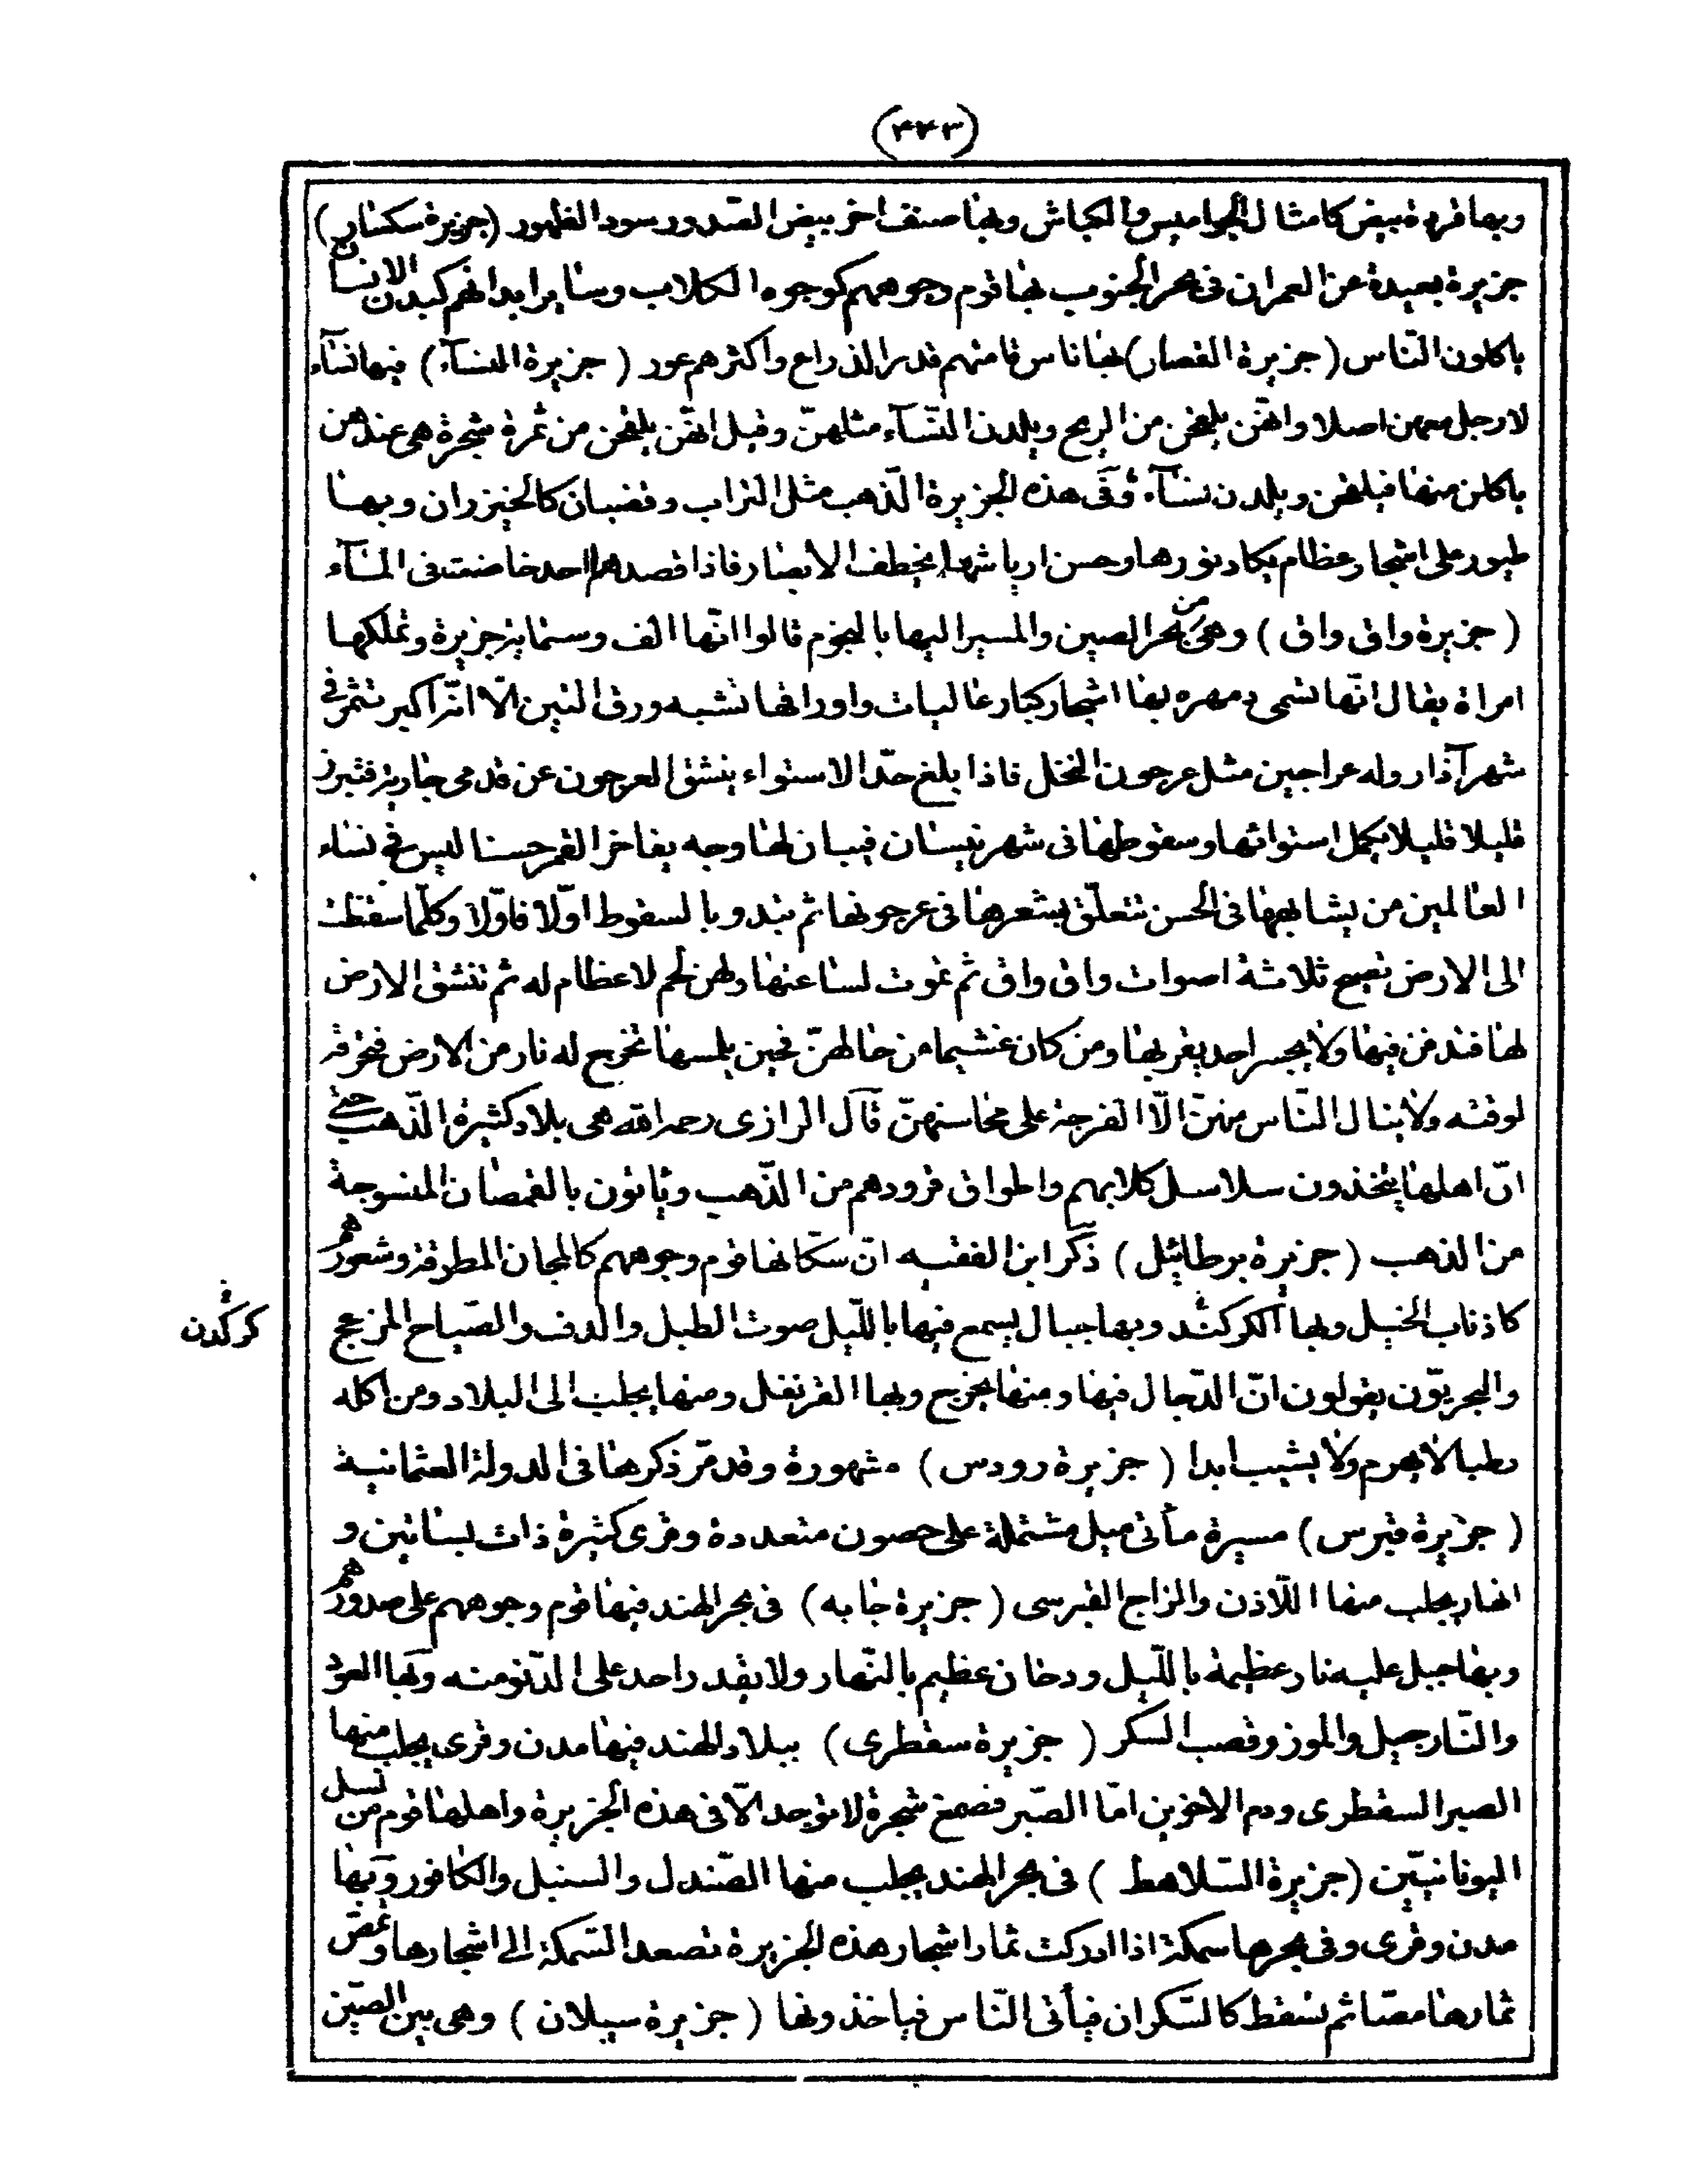 (٤٤٣)
وبها قردة بيض كامثال الجواميس والكباش وبها صنف اخر بيض الصدور سود الظهور (جزيرة سكسار)
جزيرة بعيدة عن العمران فى بحر الجنوب بها قوم وجوههم كوجوه الكلاب وساير ابدانهم كبدن الانسان
ياكلون الناس (جزيرة القصار) بها اناس قامتهم قدر الذراع واكثرهم عور (جزيرة النسآء) فيها نسآء
لا رجل معهن اصلا وانهّن يلقحن من الريح ويلدن النسّآء مثلهنّ وقيل انهّن يلقحن من ثمرة شجرة هى عندهن
ياكلن منها فيلقحن ويلدن نسآء وفى هذه الجزيرة الذّهب مثل التراب وقضبان كالخيزران وبها
طيور على اشجار عظام يكاد نورها وحسن ارياشها يخطف الابصار فاذا قصدها احد خاضت فى المآء
(جزيرة واق واق) وهى من بحر الصين والمسير اليها بالنجوم قالوا انّها الف وستمايه جزيرة وتملكها
امراة يقال انّها تسمى دمهره بها اشجار كبار عاليات واوراقها تشبه ورق التين الّا انّه اكبر تثمر فى
شهر آذار وله عراجين مثل عرجون النخل فاذا بلغ حدّ الاستواء ينشق العرجون عن قدمى جارية فتبرز
قليلا قليلا يكمل استوائها وسقوطها فى شهر نيسان فيبان لها وجه يفاخر القمر حسنا ليس فى نساء
العالمين من يشابهها فى الحسن تتعلّق بشعرها فى عرجونها ثم تبدو بالسقوط اوّلا فاوّلا وكلّما سقطت
الى الارض تصيح ثلاثة اصوات واق واق ثم تموت لساعتها ولهن لحم لاعظام له ثم تنشق الارض
لها فتدفن فيها ولا يجسر احد يقربها ومن كان غشيما من حالهنّ فحين يلمسها تخرج له نار من الارض فتحرقه
لوقته ولا ينال النّاس منهنّ الّا الفرجة على محاسنهنّ قآل الرازى رحمه الله هى بلاد كثيرة الذّهب حتى
انّ اهلها يتخذون سلاسل كلابهم واطواق قرودهم من الذّهب ويأتون بالقمصان المنسوجة
من الذهب (جزيرة برطائيل) ذكر ابن الفقيه ان سكّانها قوم وجوههم كالمجان المطرقة وشعورهم
كاذناب الخيل وبها الكركند وبها جبال يسمع فيها بالليّل صوت الطبل والدف والصّياح المزعج
كركدن
والبحريّون يقولون انّ الدّجال فيها ومنها يخرج وبها القرنفل ومنها يجلب الى البلاد ومن اكله
رطبا لا يهرم ولا يشيب ابدا (جزيرة رودس) مشهورة وقد مرّ ذكرها فى الدولة العثمانية
(جزيرة قبرس) مسيرة مأتى ميل مشتملة على حصون متعددة وقرى كثيرة ذات بساتين و
انهار يجلب منها اللّاذن والزاج القبرسى (جزيرة جابه) فى بحر الهند فيها قوم وجوههم على صدورهم
وبها جبل عليه نار عظيمة بالليّل ودخان عظيم بالنهّار ولا يقدر احد على الدّنو منه وبها العود
والنّارجيل والموز وقصب السكر (جزيرة سقطرى) ببلاد الهند فيها مدن وقرى يجلب منها
الصبر السقطرى ودم الاخوين امّا الصّبر فصمغ شجرة لا توجد الّا فى هذه الجزيرة واهلها قوم من نسل
اليونانييّن (جزيرة السّلاهط) فى بحر الهند يجلب منها الصّندل والسنبل والكافور وبها
مدن وقرى وفى بحرها سمكة اذا ادركت ثمار اشجار هذه الجزيرة تصعد السّمكة الى اشجارها وتمصّ
ثمارها مصّا ثم تسقط كالسّكران فيأتى النّاس فياخذونها (جزيرة سيلان) وهى بين الصيّن